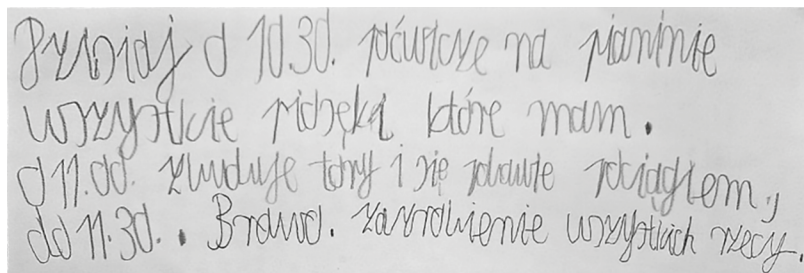 Dzisiaj o 10.30. poćwiczę na pianinie
wszystkie piosęki które mam.
o 11.00. zbuduje tory i się pobawie pociągiem,
do 11.30. . Brawo. zazrobienie wszystkich rzeczy.